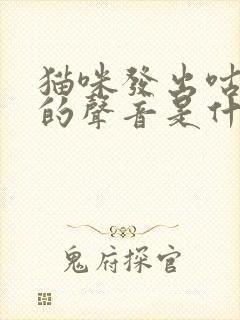 猫咪發出咕
的聲音是什
鬼府探官